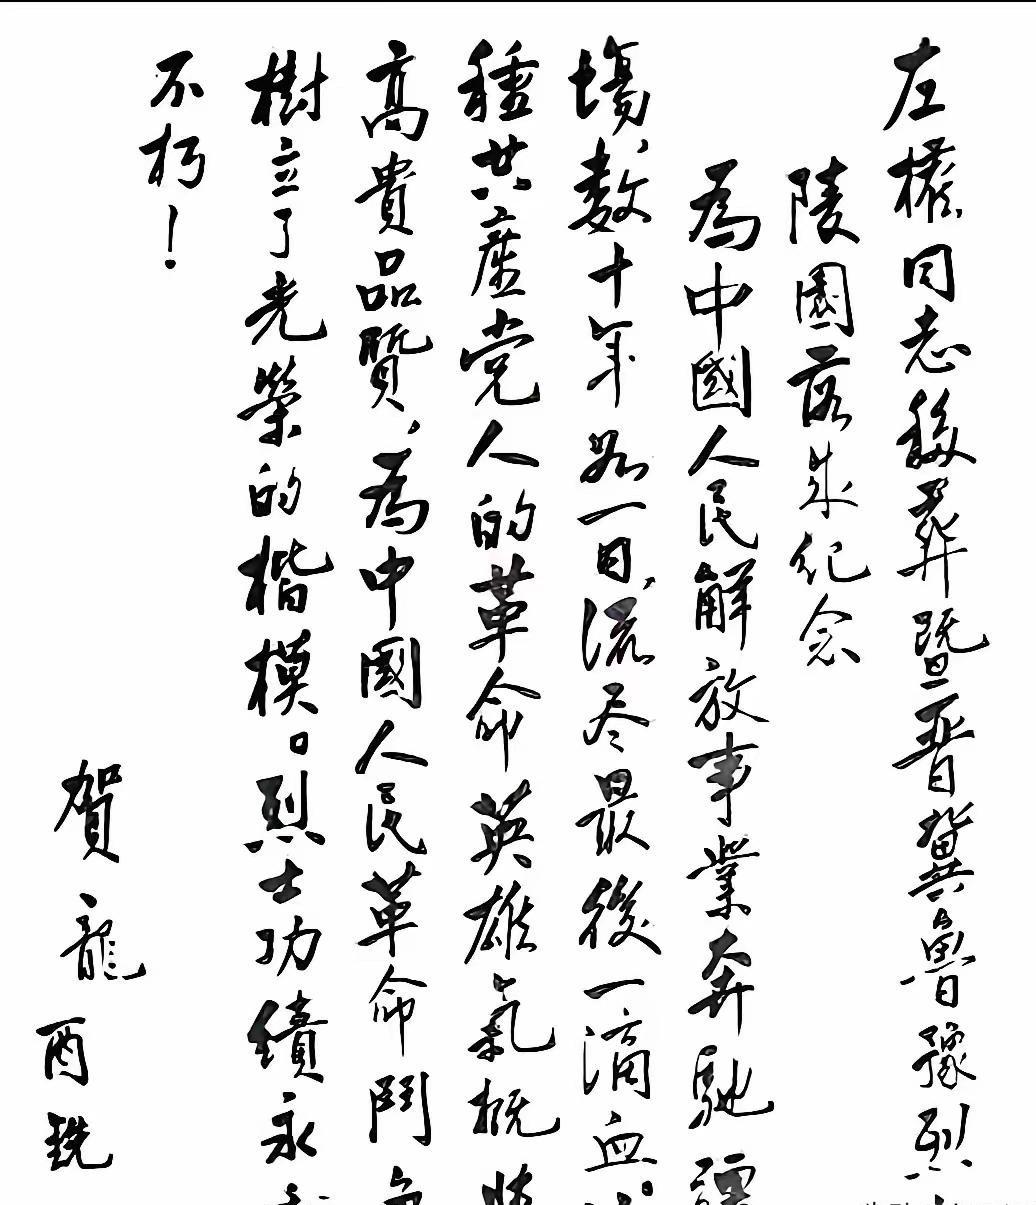 左權同志移葬暨晉冀魯豫烈
陵園落成紀念
為中國人民解放事業奔馳疆
場，数十年如一日，流尽最後一滴血。
種共產党人的革命英雄氣概
高貴品質，為中國人民革命鬥
樹立了光榮的楷模。烈士功績永
不朽！
賀龍